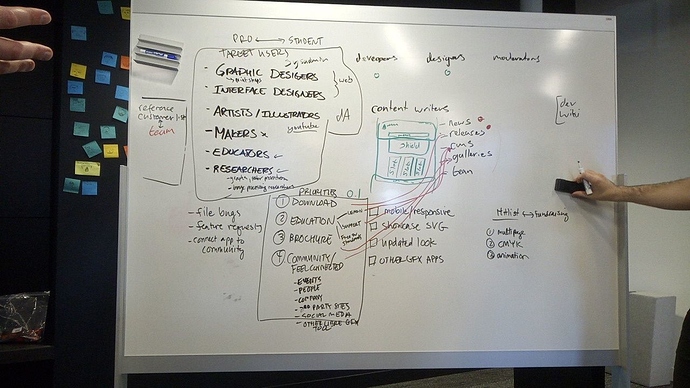 PRO STUDENT
TARGET USERS
- GRAPHIC DESIGERS
- INTERFACE DESIGNERS
web
- ARTISTS/ILLUSTRATORS
dA
youtube
- MAKERS x
- EDUCATORS
- RESEARCHERS
reference
customer
team
developers
designers
moderators
content writers
- news
- releases
- rums
- galleries
- team
Shield
[dev
wiki
PRIORITIES 0.1
1 DOWNLOAD
2 EDUCATION
3 BROCHURE
4 COMMUNITY/
FEEL CONNECTED
- EVENTS
- PEOPLE
- 3RD PARTY SITES
- SOCIAL MEDIA
- OTHER LIBRE GFX
TOOL
LEARN
SUPPORT
- file bugs
- feature requests
- connect app to
community
mobile/responsive
showcase SVG
updated look
OTHER GFX APPS
Hitlist Fundraising
1 multipage
2 CMYK
3 animation